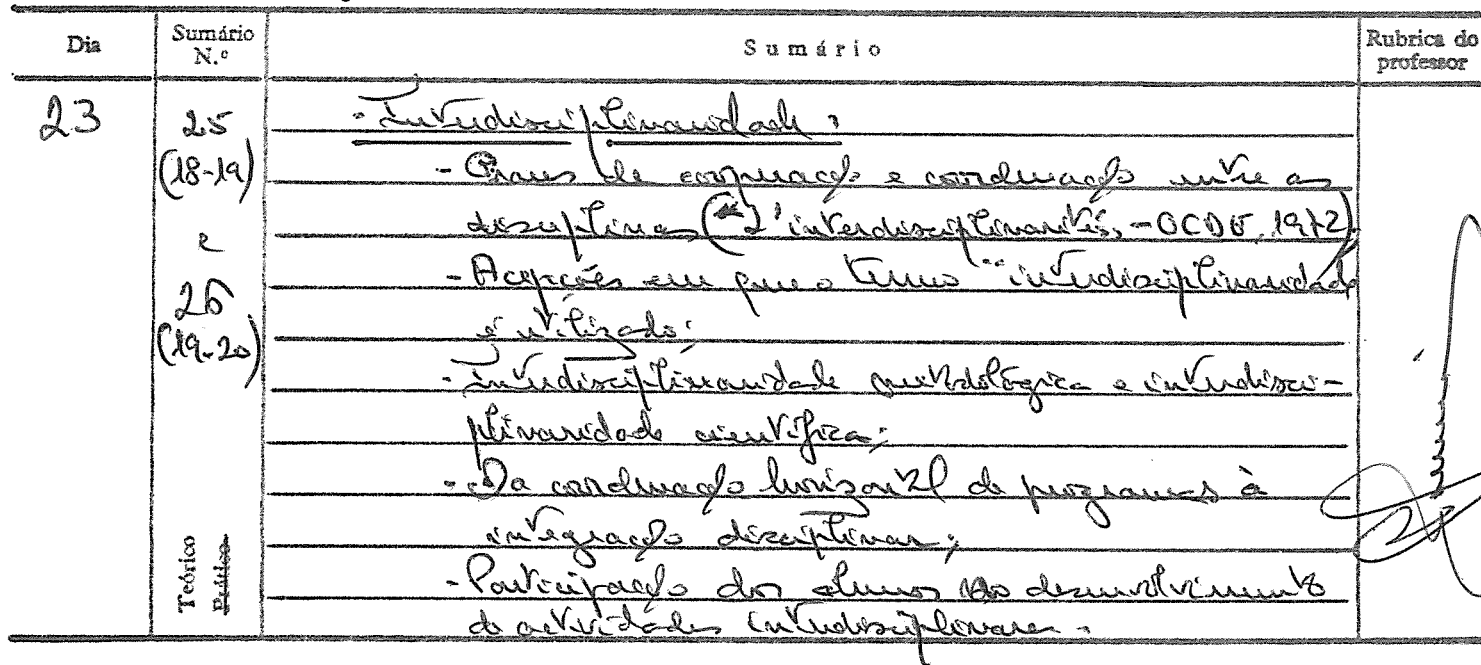 Dia
Sumário N.º
Sumário
Rubrica do professor
23
25
(18-19)
e
26
(19-20)
Teórico
Prático
- Interdisciplinaridade:
- Graus de cooperação e coordenação entre as
disciplinas ("L'interdisciplinarité, - OCDE, 1972)
- Acepções em que o termo "interdisciplinaridade
é utilizado;
- Interdisciplinaridade metodológica e interdisci-
plinaridade científica;
- Da coordenação horizontal de programas à
integração disciplinar;
- Participação dos alunos no desenvolvimento
de actividades interdisciplinares.